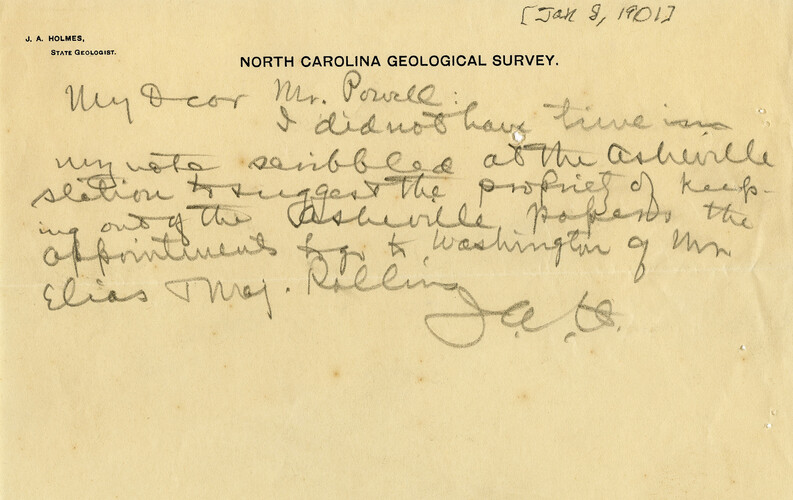 [Jan 8, 1901]
J. A. HOLMES,
STATE GEOLOGIST.
NORTH CAROLINA GEOLOGICAL SURVEY.
My Dear Mr. Powell:
I did not have time in
my note scribbled at the Asheville
station to suggest the propriety of keep-
ing out of the Asheville papers the
appointments to go to Washington of Mr
Elias & Maj. Rollins
J.A.H.